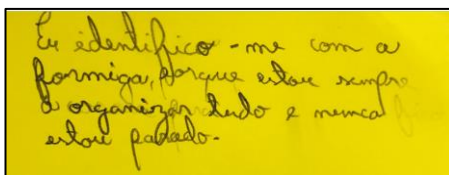 Eu identifico-me com a
formiga, porque estou sempre
a organizar tudo e nunca
estou parado.